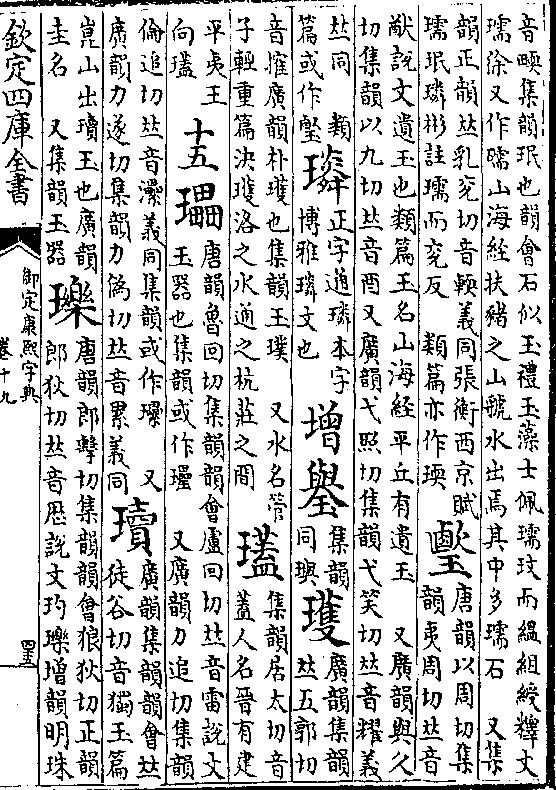 音㬉集韻珉也韻會石似玉禮玉藻士佩瓀玟而縕組綬釋文
瓀徐又作𤩄山海經扶豬之山虢水出焉其中多瓀石　又集
韻正韻𠀤乳兗切音輭義同張衡西京賦
瓀珉璘彬註瓀而兗反　類篇亦作瑌
唐韻以周切集
韻夷周切𠀤音
猷說文遺玉也類篇玉名山海經平丘有遺玉　又廣韻與久
切集韻以九切𠀤音酉又廣韻弋照切集韻弋笑切𠀤音耀義
𠀤同　類
篇或作
正字通璘本字
博雅璘文也
增
集韻
同璵
瓁
廣韻集韻
𠀤五郭切
音擭廣韻朴瓁也集韻玉璞　又水名管
子輕重篇決瓁洛之水通之杭莊之間
瓂
集韻居太切音
蓋人名晉有建
平夷王
向瓂
十五
瓃
唐韻魯回切集韻韻會盧回切𠀤音雷說文
玉器也集韻或作㼍　又廣韻力追切集韻
倫追切𠀤音灅義同集韻或作　又
廣韻力遂切集韻力偽切𠀤音累義同
瓄
廣韻集韻韻會𠀤
徒谷切音獨玉篇
崑山出瓄玉也廣韻
圭名　又集韻玉器
瓅
唐韻郎擊切集韻韻會狼狄切正韻
郎狄切𠀤音歷說文玓瓅增韻明珠
欽定四庫全書
御定康熙字典
卷十九